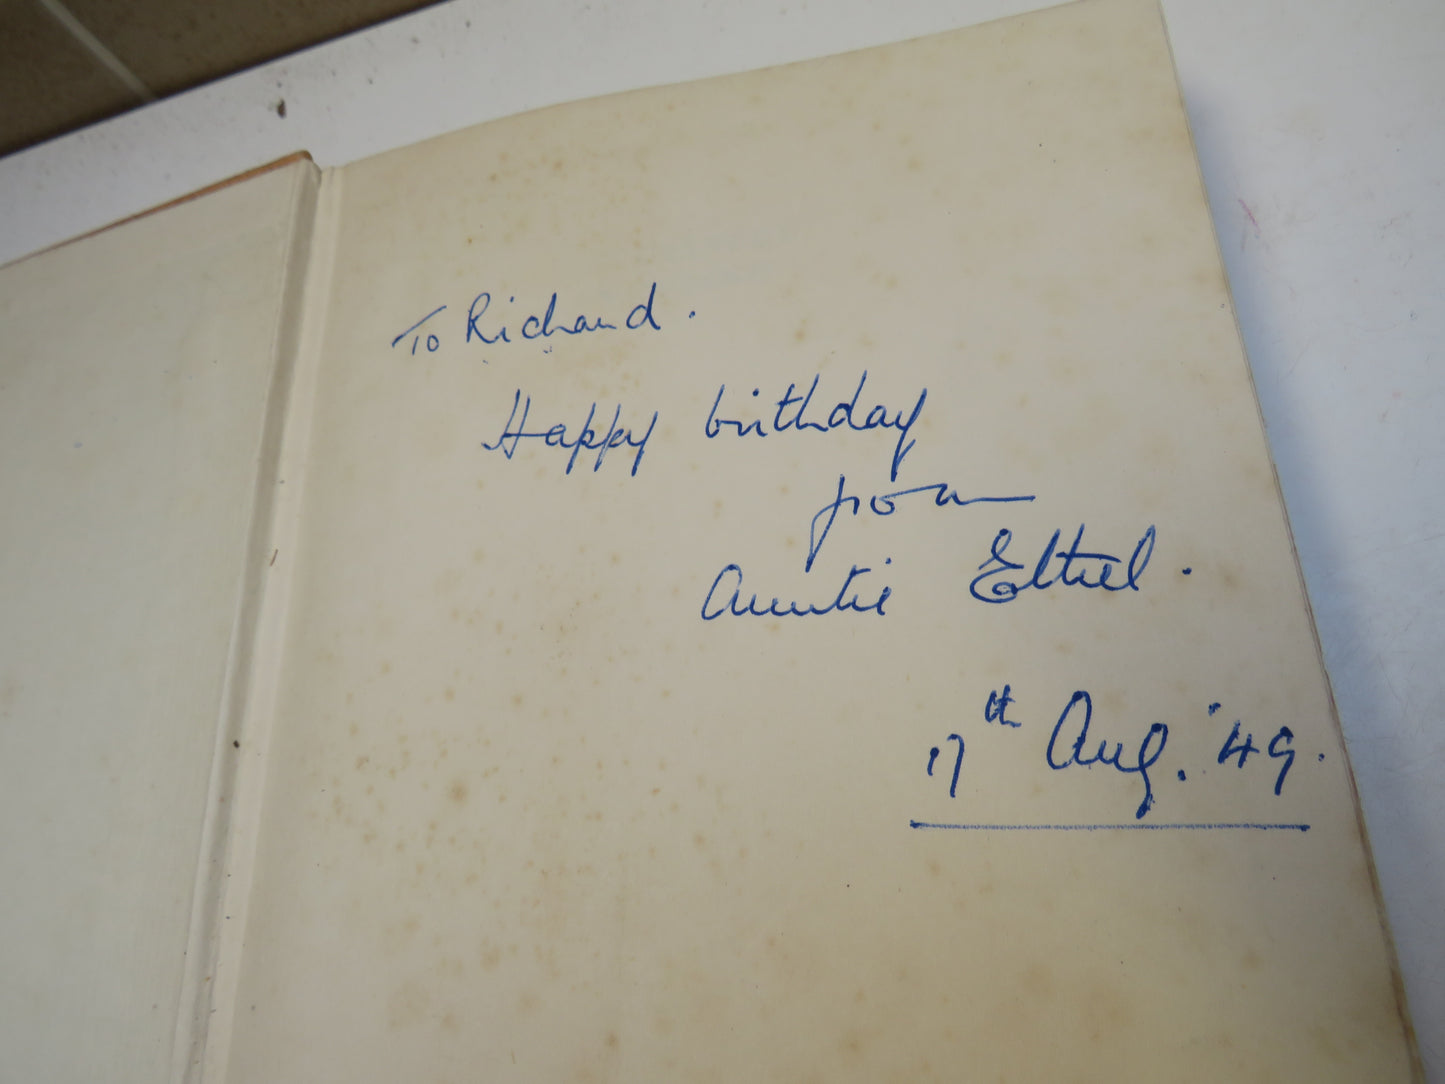 To Richard.
Happy birthday
from
Auntie Ethel.
17th Aug. '49.